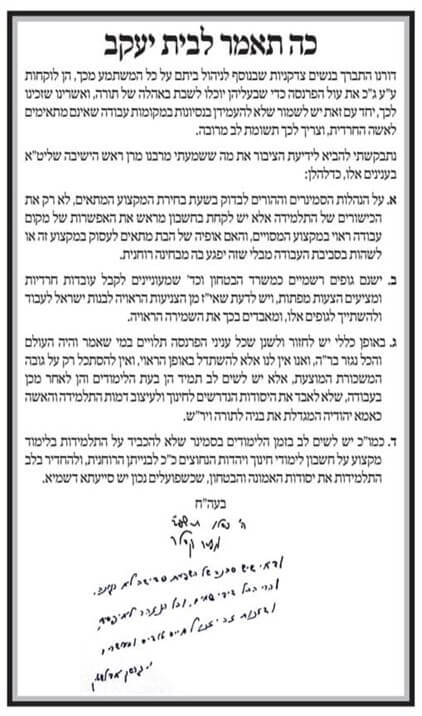 כה תאמר לבית יעקב
דורנו התברך בנשים צדקניות שבנוסף לניהול ביתם על כל המשתמע מכך, הן לוקחות
ע״ע ג״כ את עול הפרנסה כדי שבעליהן יוכלו לשבת באהלה של תורה, ואשרינו שזכינו
לכך, יחד עם זאת יש לשמור שלא להעמידן בנסיונות במקומות עבודה שאינם מתאימים
לאשה החרדית, וצריך לכך תשומת לב מרובה.
נתבקשתי להביא לידיעת הציבור את מה ששמעתי מרבנו מרן ראש הישיבה שליט״א
בענינים אלו, כדלהלן:
א. על הנהלות הסמינרים וההורים לבדוק בשעת בחירת המקצוע המתאים, לא רק את
הכישורים של התלמידה אלא יש לקחת בחשבון מראש את האפשרות של מקום
עבודה ראוי במקצוע המסויים, והאם אופיה של הבת מתאים לעסוק במקצוע זה או
לשהות בסביבת העבודה מבלי שזה יפגע בה מבחינה רוחנית.
ב. ישנם גופים רשמיים כמשרד הבטחון וכד׳ שמעוניינים לקבל עובדות חרדיות
ומציעים הצעות מפתות, ויש לדעת שאי״ז מן הצניעות הראויה לבנות ישראל לעבוד
ולהשתייך לגופים אלו, ומאבדים בכך את השמירה הראויה.
ג. באופן כללי יש לחזור ולשנן שכל עניני הפרנסה תלויים במי שאמר והיה העולם
והכל נגזר בר״ה, ואנו אין לנו אלא להשתדל באופן הראוי, ואין להסתכל רק על גובה
המשכורת המוצעת, אלא יש לשים לב תמיד הן בעת הלימודים והן לאחר מכן
בעבודה, שלא לאבד את היסודות הנדרשים לחינוך ולעיצוב דמות התלמידה והאשה
כאמא יהודיה המגדלת את בניה לתורה ויר״ש.
ד. כמו״כ יש לשים לב בזמן הלימודים בסמינר שלא להכביד על התלמידות בלימוד
מקצוע על חשבון לימודי חינוך ויהדות הנחוצים כ״כ לבנייתן הרוחנית, ולהחדיר בלב
התלמידות את יסודות האמונה והבטחון, שכשפועלים נכון יש סייעתא דשמיא.
בעה״ח